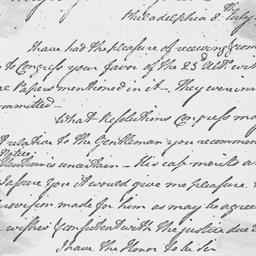 Philadelphia 8th July
I have had the pleasure of receiving from
to Congress your favor of the 23d Ulto. with
Papers mentioned in it — They were imm
committed —
What Resolutions Congress may
relation to the Gentleman you recommen
is uncertain — His case merits a
I assure you it would give me pleasure
provision made for him as may be agree
wishes & consistent with the justice due
I have the Honor to be Sir